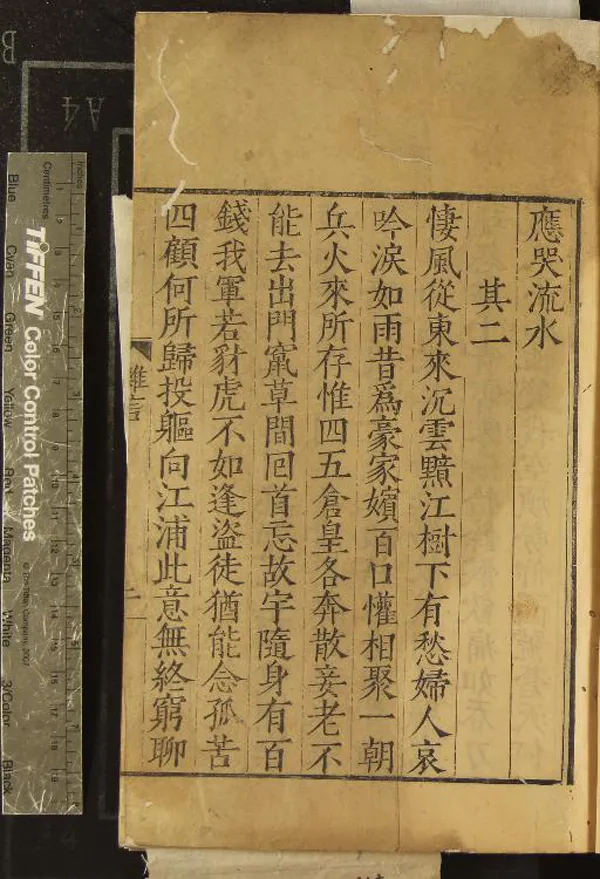 應哭流水
其二
悽風從東來沉雲黯江樹下有愁婦人哀
吟淚如雨昔爲豪家嬪百口懽相聚一朝
兵火來所存惟四五倉皇各奔散妾老不
能去出門竄草間囘首忘故宇隨身有百
錢我軍若豺虎不如逢盜徒猶能念孤苦
四顧何所歸投軀向江浦此意無終窮聊
雜言
二
Inches
Centimetres
TIFFEN Color Control Patches
© The Tiffen Company, 2007
Blue
Cyan
Green
Yellow
Red
Magenta
White
3/Color
Black
B
A4